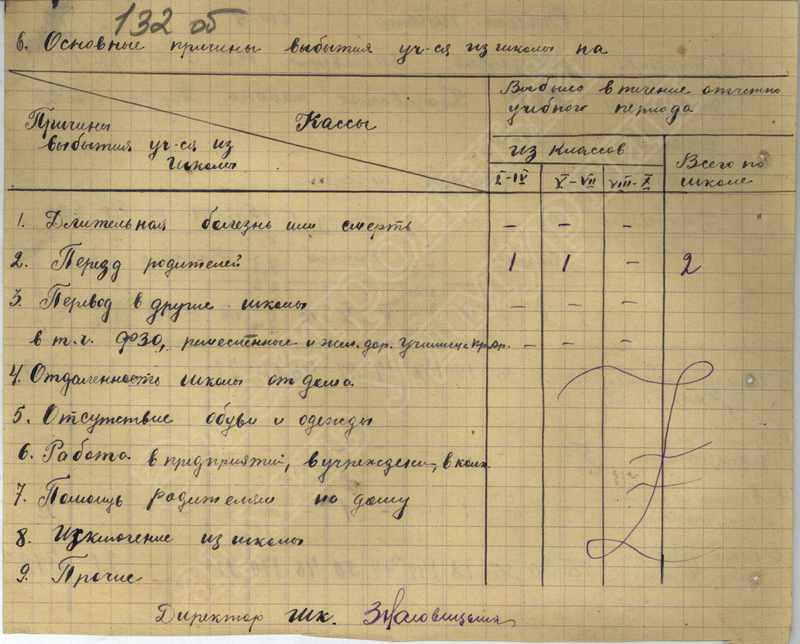 132 об
6. Основные причины выбытия уч-ся из школы на
Выбыло в течение отчетно
учебного периода
Причины
выбытия уч-ся из
школы
Кассы
из классов
Всего по
школе
I-IV V-VII VIII-X
1. Длительная болезнь или смерть - - -
2. Перезд родителей 1 1 - 2
3. Перевод в другие школы - - -
в т.ч. ФЗО, ремесленные и жел. дор. училище - - -
4. Отдаленность школы от дома
5. Отсутствие обуви и одежды
6. Работа в предприятий, в учрежден, в колх
7. Помощь родителям по дому
8. Изключение из школы
9. Прочие
Директор шк.